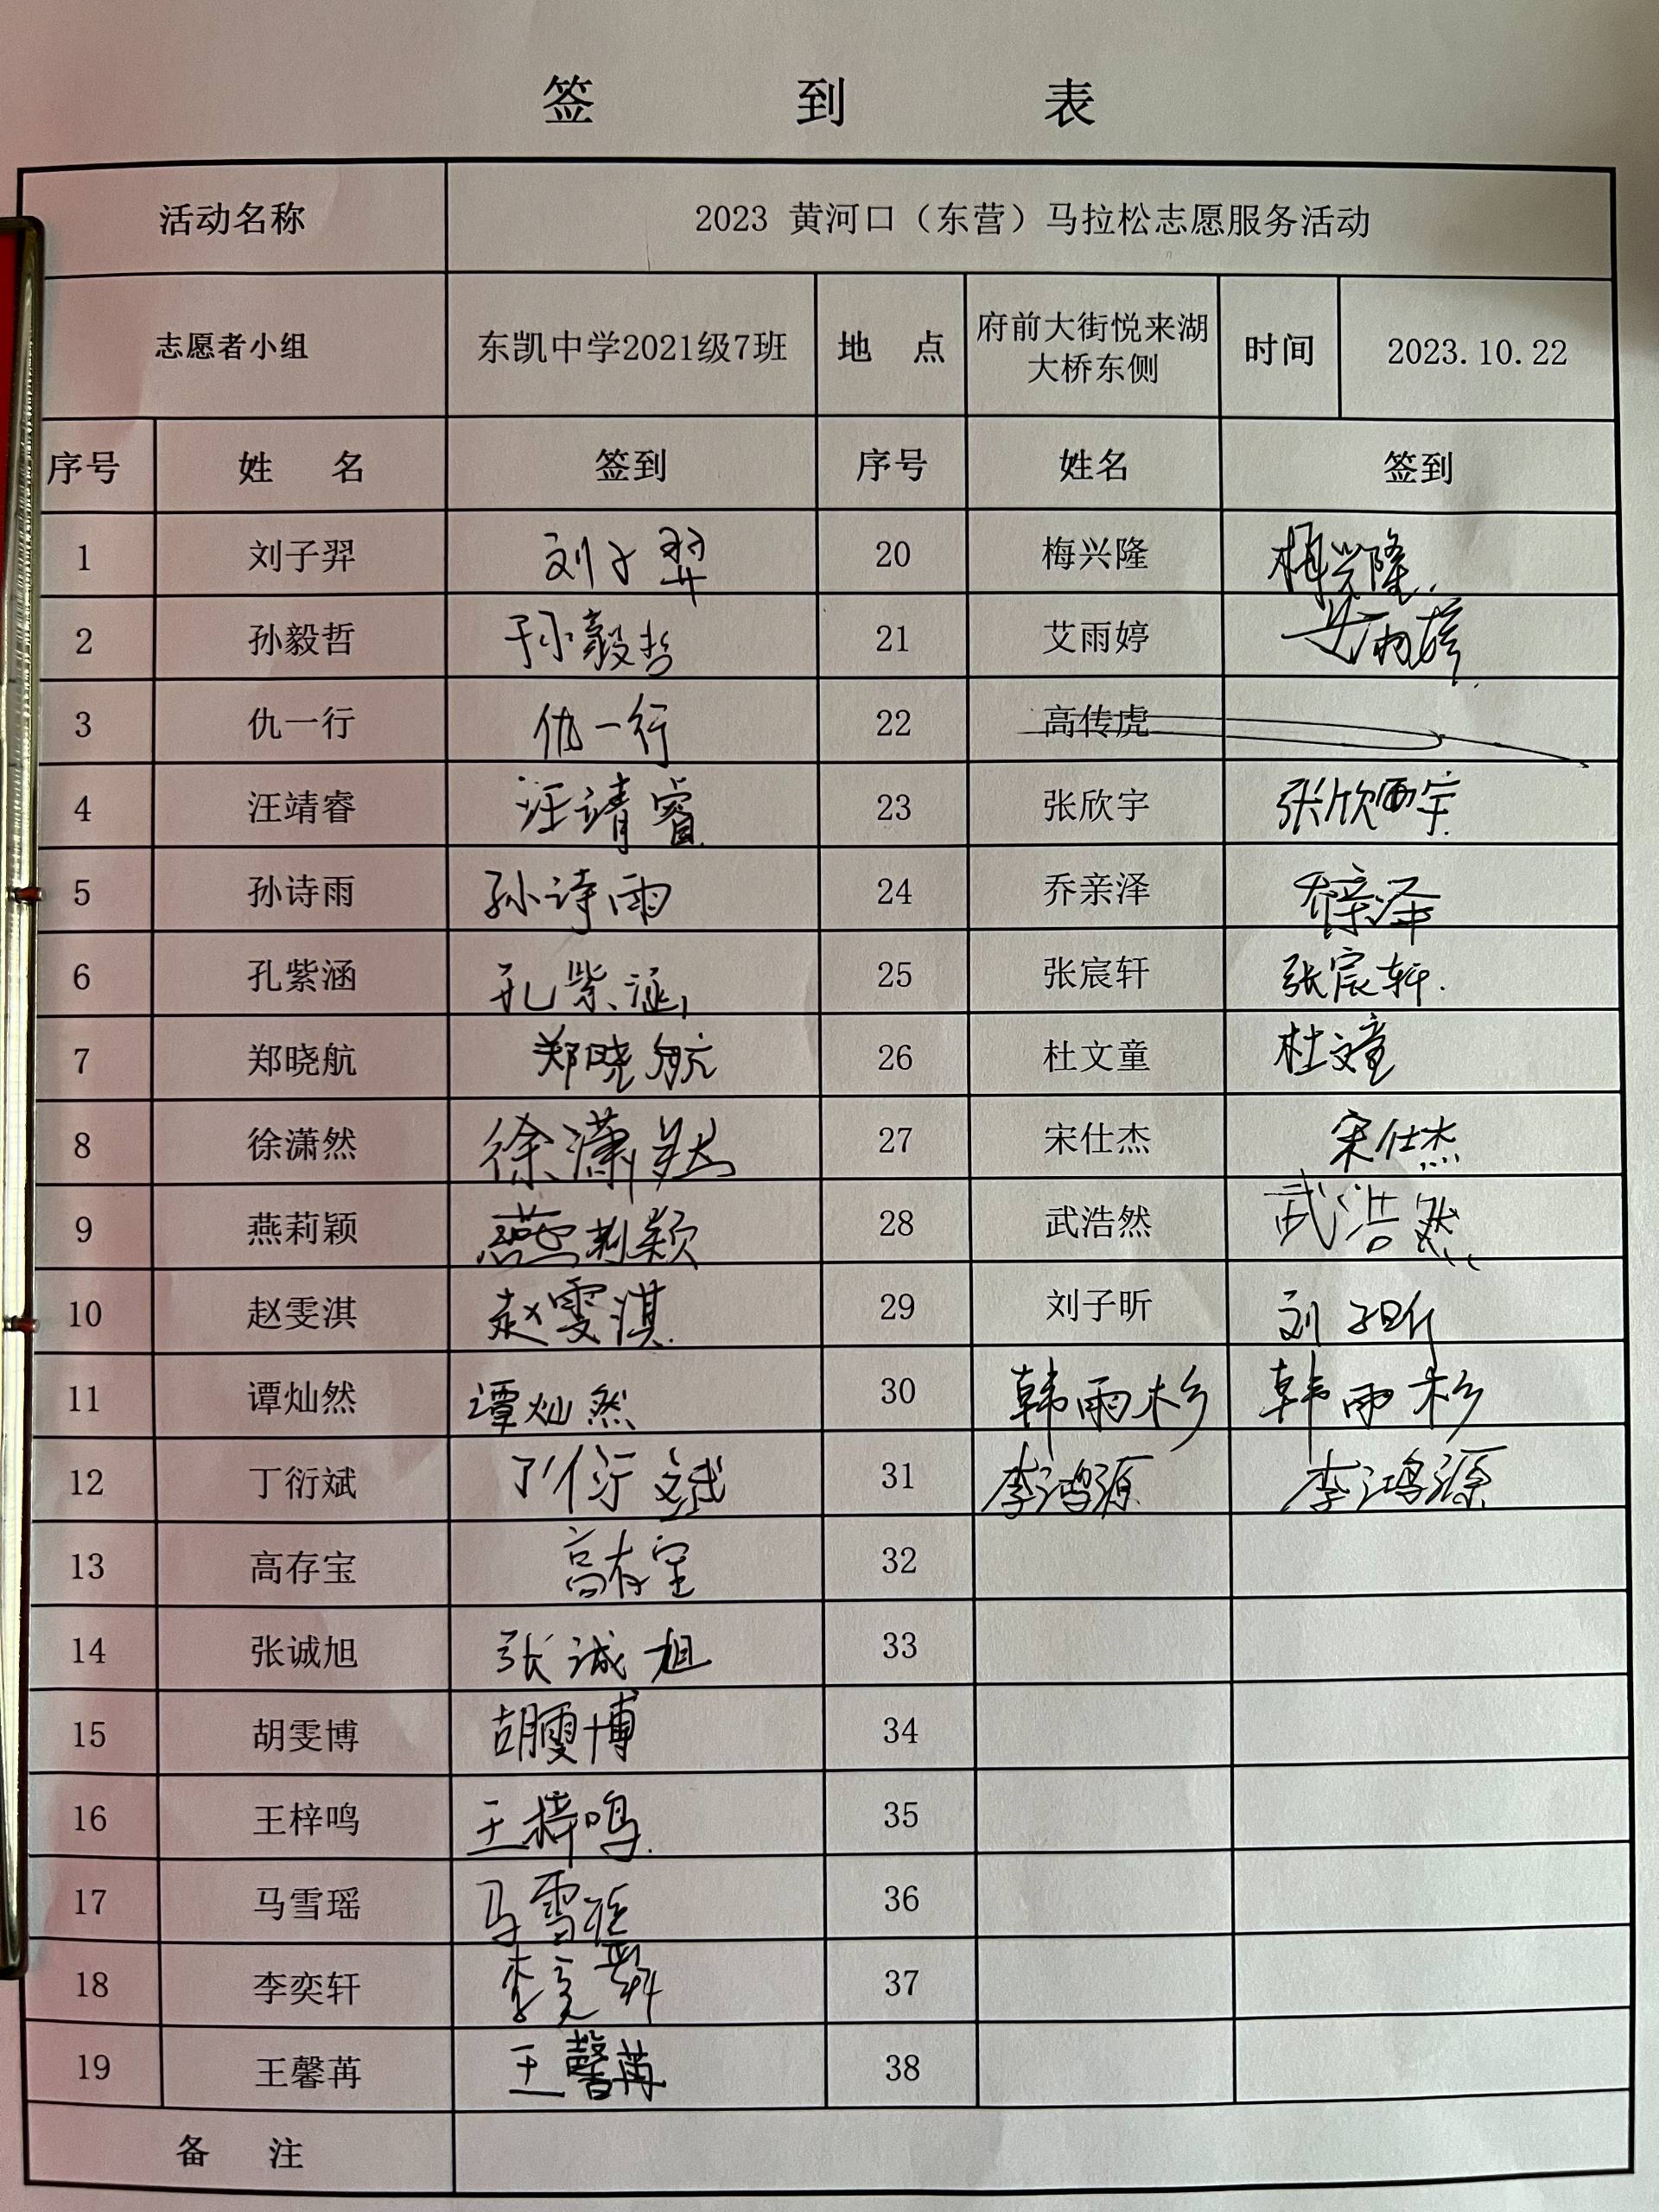 签 到 表
活动名称 2023 黄河口（东营）马拉松志愿服务活动
志愿者小组 东凯中学2021级7班 地 点 府前大街悦来湖大桥东侧 时间 2023.10.22
序号 姓 名 签到 序号 姓名 签到
1 刘子羿 刘子羿 20 梅兴隆 梅兴隆
2 孙毅哲 孙毅哲 21 艾雨婷 艾雨婷
3 仇一行 仇一行 22 高传虎
4 汪靖睿 汪靖睿 23 张欣宇 张欣宇
5 孙诗雨 孙诗雨 24 乔亲泽 乔亲泽
6 孔紫涵 孔紫涵 25 张宸轩 张宸轩
7 郑晓航 郑晓航 26 杜文童 杜文童
8 徐潇然 徐潇然 27 宋仕杰 宋仕杰
9 燕莉颖 燕莉颖 28 武浩然 武浩然
10 赵雯淇 赵雯淇 29 刘子昕 刘子昕
11 谭灿然 谭灿然 30 韩雨杉 韩雨杉
12 丁衍斌 丁衍斌 31 李鸿源 李鸿源
13 高存宝 高存宝 32
14 张诚旭 张诚旭 33
15 胡雯博 胡雯博 34
16 王梓鸣 王梓鸣 35
17 马雪瑶 马雪瑶 36
18 李奕轩 李奕轩 37
19 王馨苒 王馨苒 38
备 注